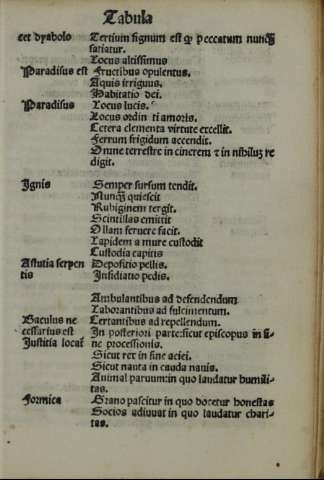 Tabula
cet dyabolo Tertium signum est qp peccatum nunq̃
satiatur.
Locus altissimus
Paradisus est Fructibus opulentus.
Aquis irriguus.
Habitatio dei.
Paradisus Locus lucis.
Locus ordin ti amoris.
Cetera elementa virtute excellit.
Ferrum frigidum accendit.
Omne terrestre in cinerem ⁊ in nihilũ re
digit.
Ignis Semper sursum tendit.
Nunq̃ quiescit
Rubiginem tergit.
Scintillas emittit
Ollam feruere facit.
Lapidem a mure custodit
Custodia capitis
Astutia serpen Depositio pellis.
tis Insidiatio pedis.
Ambulantibus ad defendendum
Laborantibus ad fulcimentum.
Baculus ne Certantibus ad repellendum.
cessarius est In posteriori parte: sicut episcopus in fi⸗
Justitia locat᷒ ne processionis.
Sicut rex in fine aciei.
Sicut nauta in cauda nauis.
Animal paruum: in quo laudatur humili⸗
tas.
Formica Grano pascitur in quo docetur honestas
Socios adiuuat in quo laudatur chari⸗
tas.